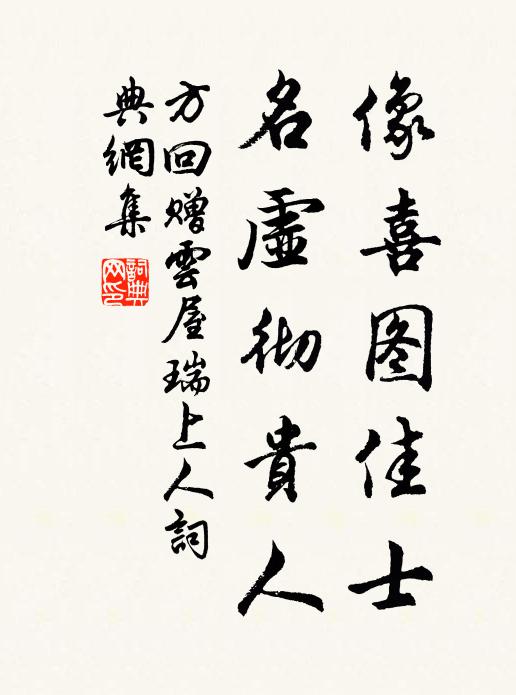 像喜图佳士
名虚彻貴人
方回赠雲屋瑞上人詞
典網集
詞典
网印